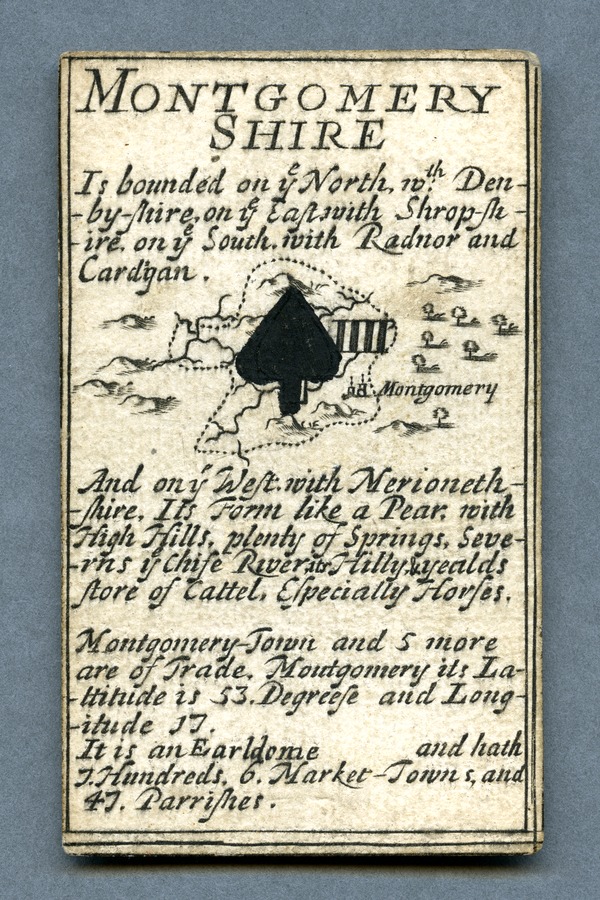 MONTGOMERY
SHIRE
Is bounded on yͤ North, wᵗʰ Den-
-by-ſhire, on yͤ Eaſt with Shrop-ſh-
-ire. on yͤ South. with Radnor and
Cardgan.
Montgomery
And on yͤ Weſt. with Merioneth-
-ſhire. Its Form like a Pear. with
High Hills. plenty of Springs. Seve-
-rns yͤ chife River, its Hilly & yealds
ſtore of Cattel. Eſpecially Horſes.
Montgomery-Town and 5 more
are of Trade. Moutgomery its La-
-ttitude is 53. Degreeſe and Long-
-itude 17.
It is an Earldome and hath
7. Hundreds. 6. Market-Towns, and
47. Parriſhes.